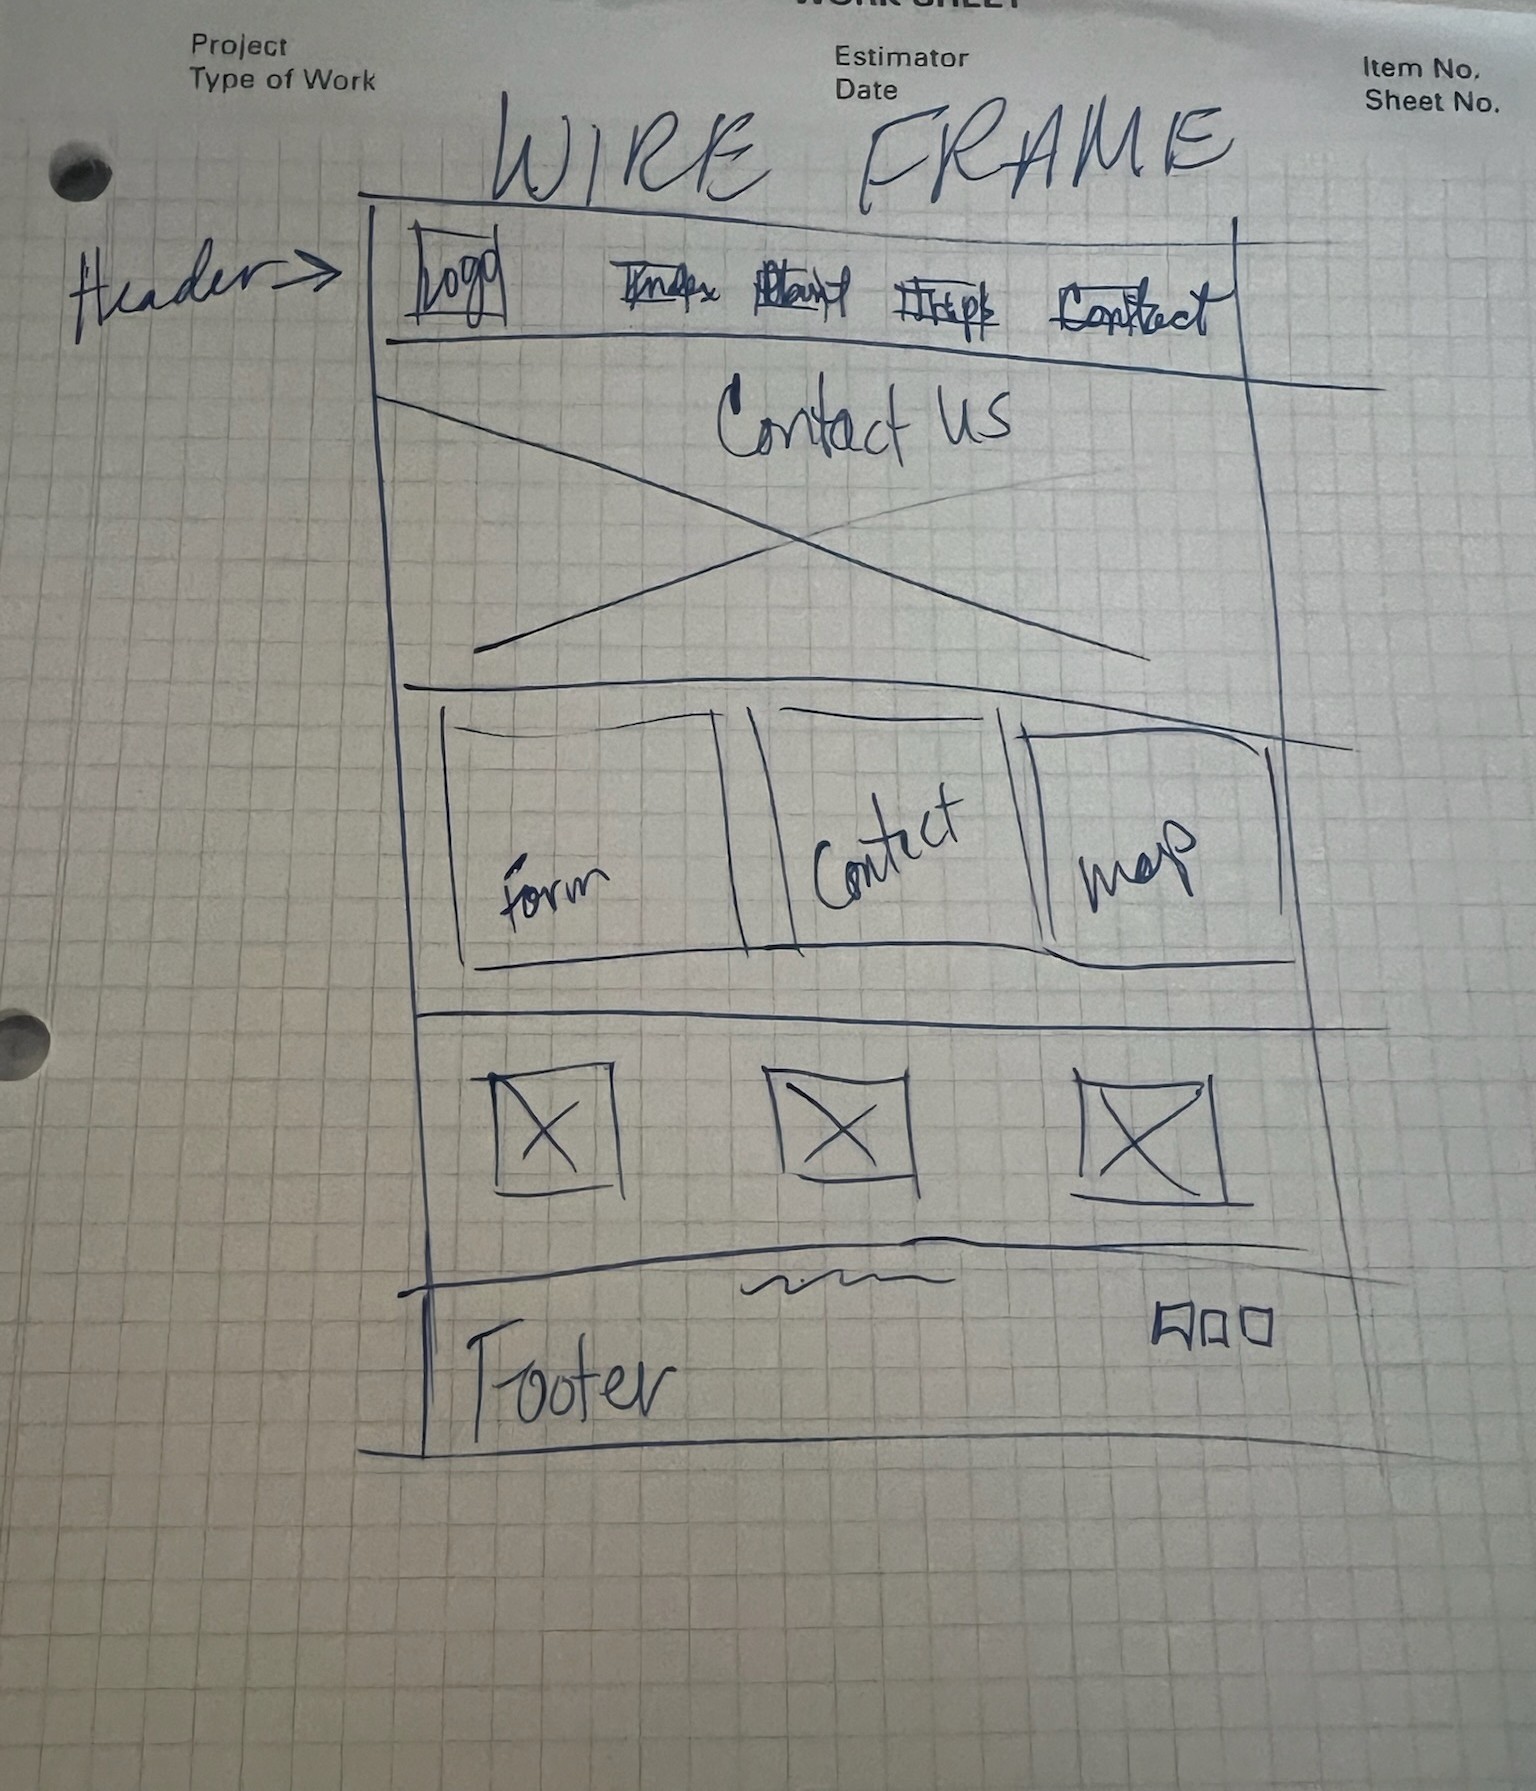 WORK SHEET
Project
Type of Work
Estimator
Date
Item No.
Sheet No.
WIRE FRAME
Header
Logo Index Contact
Contact US
Form Contact Map
Footer